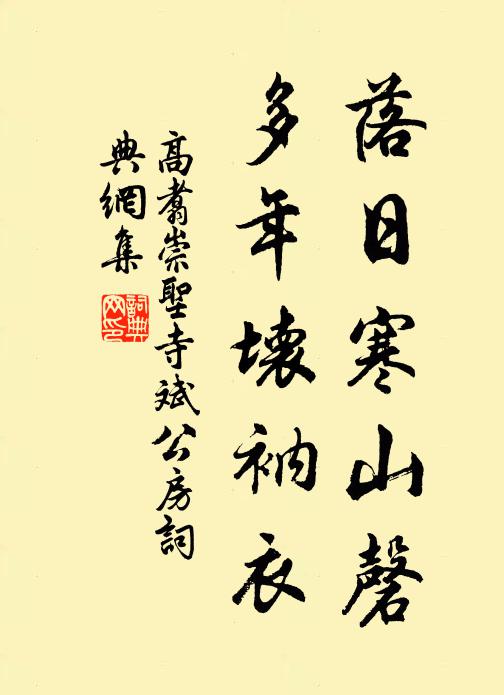 落日寒山磬
多年壞衲衣
高翥崇聖寺斌公房詞
典網集
詞典網印